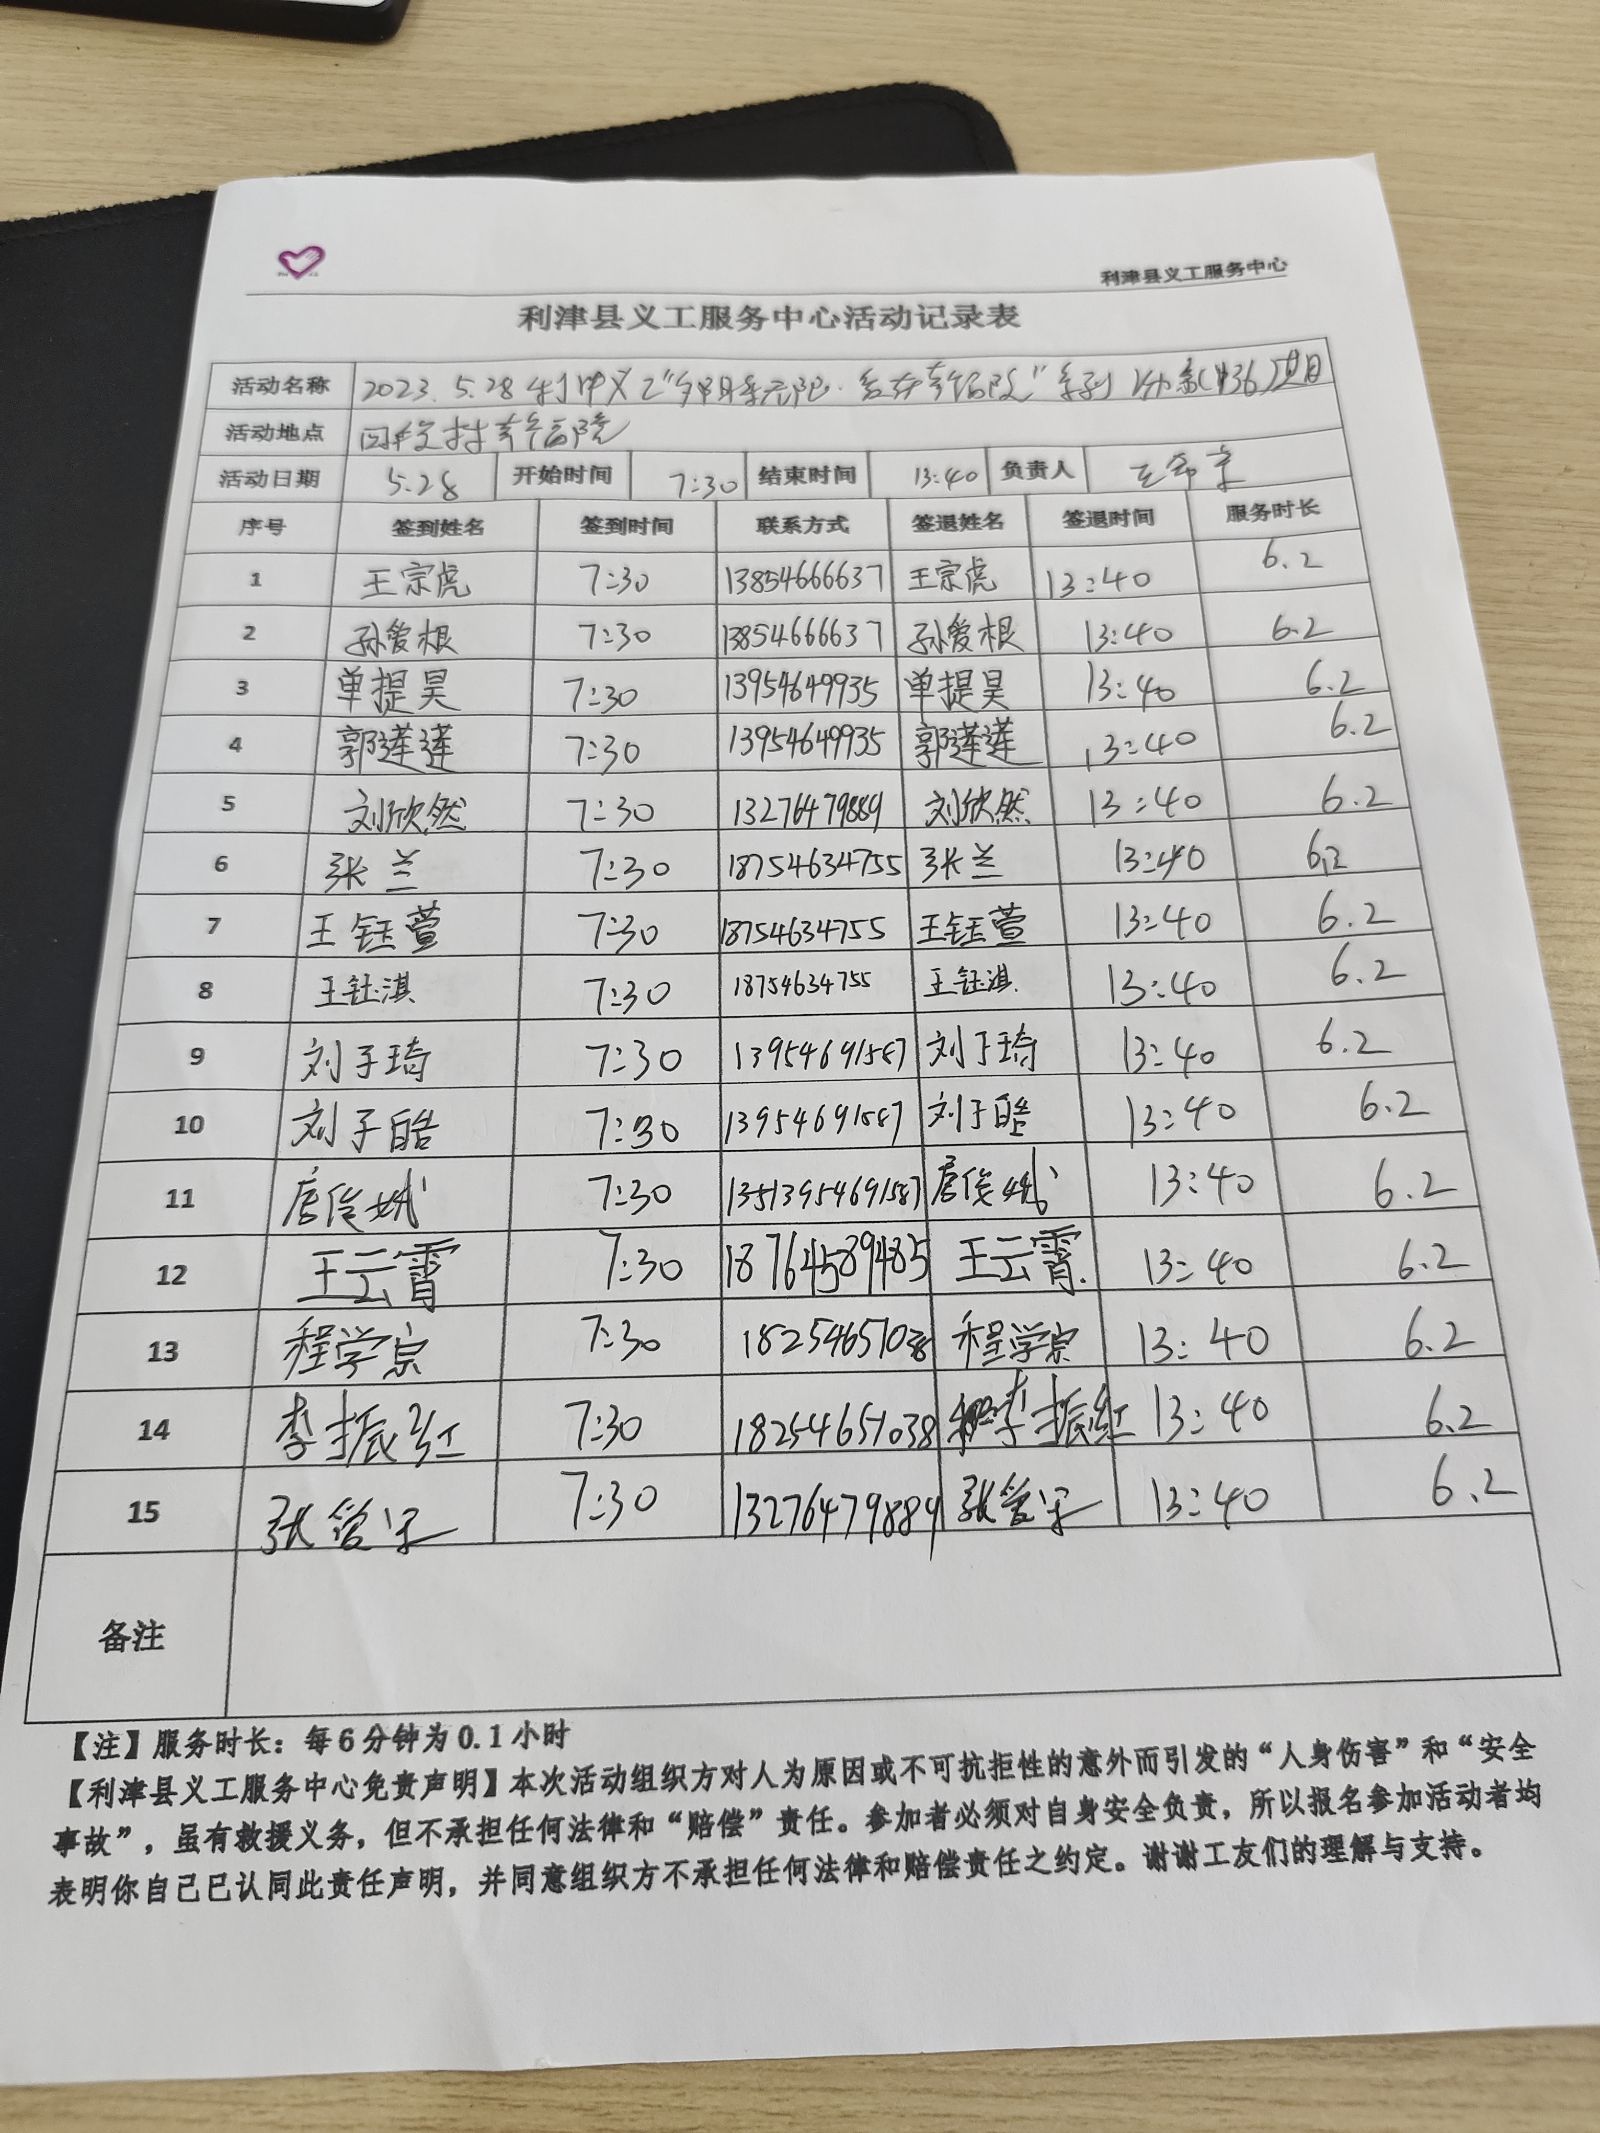 利津县义工服务中心
利津县义工服务中心活动记录表
活动名称 2023.5.28 系列 (136)项目
活动地点 村幸福院
活动日期 5.28 开始时间 7:30 结束时间 13:40 负责人
序号 签到姓名 签到时间 联系方式 签退姓名 签退时间 服务时长
1 王宗虎 7:30 13854666637 王宗虎 13:40 6.2
2 孙爱根 7:30 13854666637 孙爱根 13:40 6.2
3 单提昊 7:30 13954649935 单提昊 13:40 6.2
4 郭莲莲 7:30 13954649935 郭莲莲 13:40 6.2
5 刘欣然 7:30 13276479889 刘欣然 13:40 6.2
6 张兰 7:30 18754634755 张兰 13:40 6.2
7 王钰萱 7:30 18754634755 王钰萱 13:40 6.2
8 王钰淇 7:30 18754634755 王钰淇 13:40 6.2
9 刘子琦 7:30 13954691587 刘子琦 13:40 6.2
10 刘子皓 7:30 13954691587 刘子皓 13:40 6.2
11 唐俊娥 7:30 13513954691587 唐俊娥 13:40 6.2
12 王云霄 7:30 18764589485 王云霄 13:40 6.2
13 程学宗 7:30 18254651038 程学宗 13:40 6.2
14 李振红 7:30 18254651038 李振红 13:40 6.2
15 张管宇 7:30 13276479889 张管宇 13:40 6.2
备注
【注】服务时长：每6分钟为0.1小时
【利津县义工服务中心免责声明】本次活动组织方对人为原因或不可抗拒性的意外而引发的“人身伤害”和“安全
事故”，虽有救援义务，但不承担任何法律和“赔偿”责任。参加者必须对自身安全负责，所以报名参加活动者均
表明你自己已认同此责任声明，并同意组织方不承担任何法律和赔偿责任之约定。谢谢工友们的理解与支持。